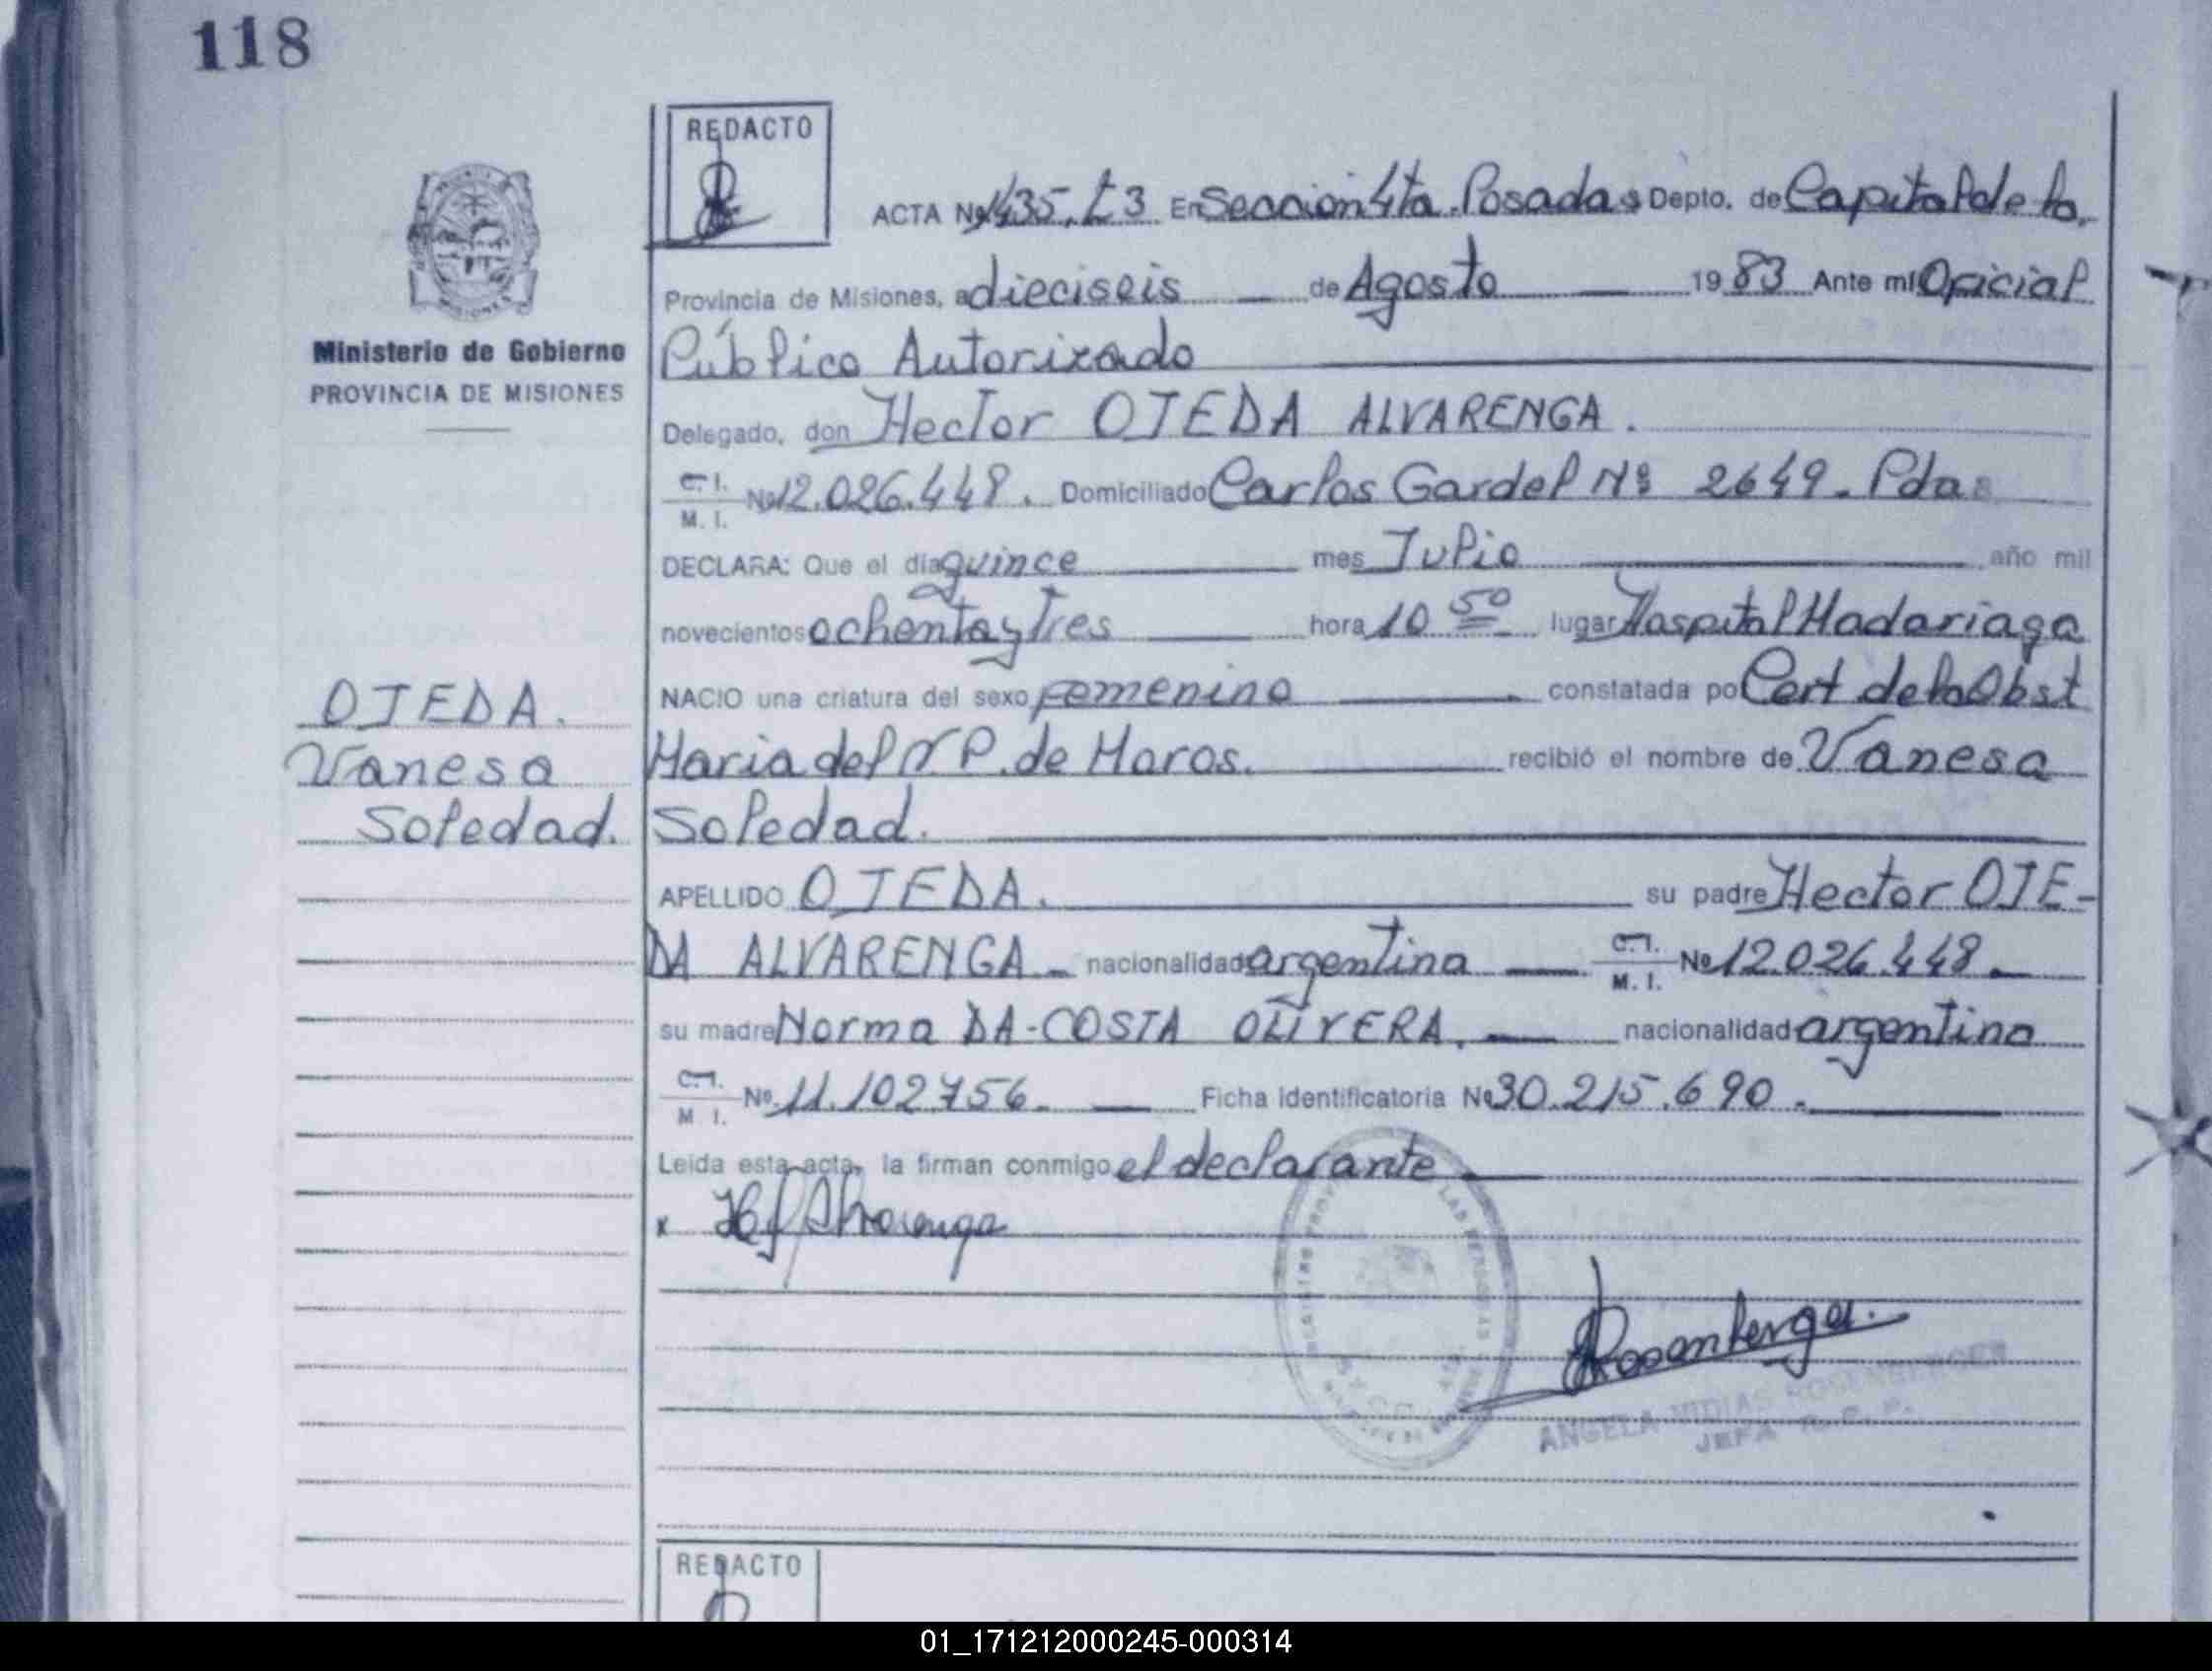 118
REDACTO
ACTA Nº 1435. t 3 En Seccion 4ta. Posadas Depto. de Capital de la
Provincia de Misiones, a dieciseis de Agosto 1983 Ante mí Oficial
Ministerio de Gobierno
PROVINCIA DE MISIONES
Público Autorizado
Delegado, don Hector OJEDA ALVARENGA.
C. I.
M. I. Nº 12.026.448. Domiciliado Carlos Gardel Nº 2649. Pdas
DECLARA: Que el día quince mes Julio año mil
novecientos ochenta y Tres hora 10 50 lugar Hospital Madariaga
NACIO una criatura del sexo femenino constatada por Cert de la Obst
OJEDA.
Vanesa
Soledad.
Maria del de Maros. recibió el nombre de Vanesa
Soledad.
APELLIDO OJEDA. su padre Hector OJE-
DA ALVARENGA nacionalidad argentina C.I.
M. I. Nº 12.026.448
su madre Norma DA-COSTA OLIVERA. nacionalidad argentina
C.I.
M I. Nº 11.102.756. Ficha identificatoria Nº 30.215.690.
Leida esta acta, la firman conmigo el declarante
x Alvarenga
Rosenberger.
ANGELA ROSENBERGER
JEFA
REDACTO
01_171212000245-000314